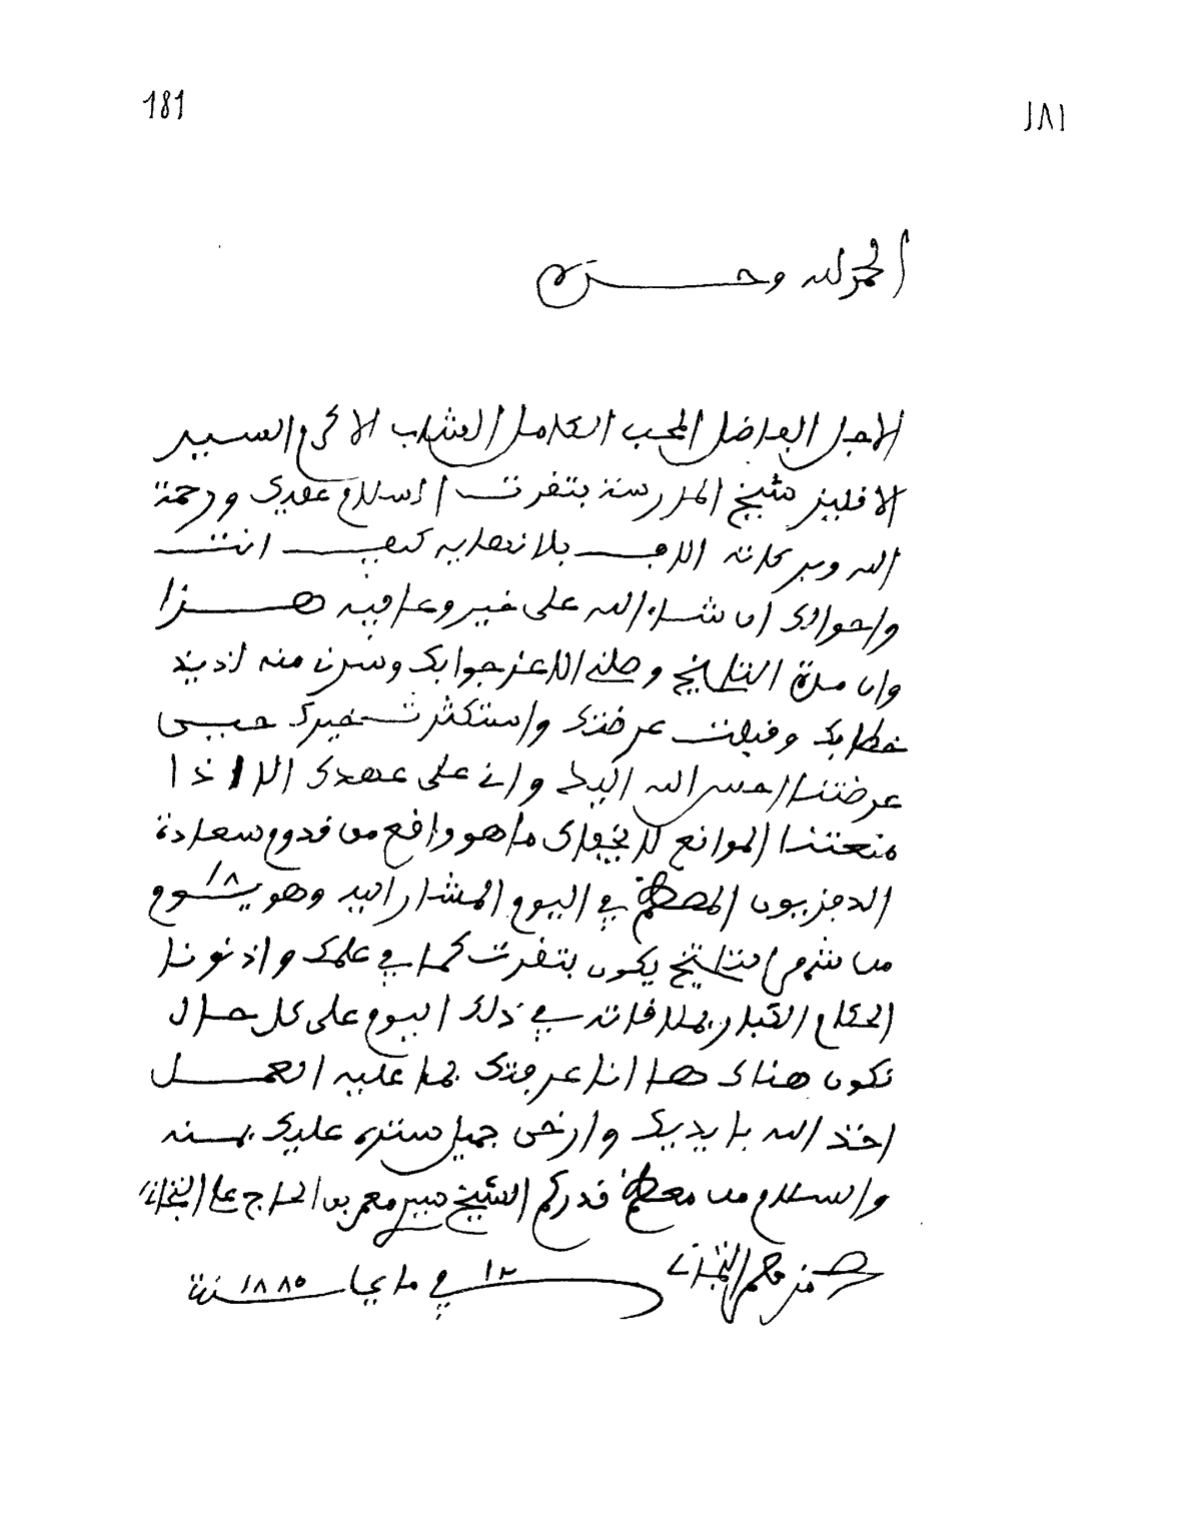 181
١٨١
الحمد لله وحده
الاجل الفاضل المحب الكامل الشاب الاكرم السيد
الافليز شيخ المدرسة بتقرت السلام عليك ورحمة
الله وبركاته بلا نهاية كيف انت
واحوالك ان شاء الله على خير وعافية هذا
وان مدة التاريخ وصلني الاعز جوابك وسرني منه لذيذ
خطابك وقبلت عرضتك واستكثرت خيرك حبيبي
عرضتنا احسن الله اليك واني على عهدك الا اذا
منعتنا الموانع ما هو واقع من قدوم سعادة
المعظم في اليوم المشار اليه وهو يوم ١٨
من شهر التاريخ يكون بتقرت كما في علمك واذنونا
الحكام الكبار بملاقاته في ذلك اليوم على كل حال
نكون هناك ها انا عرفتك بما عليه العمل
اخذ الله بايديك وارخى جميل ستره عليك بمنه
والسلام من معظم قدركم الشيخ سيد معمر بن الحاج علي التجاني
محمد معمر التجاني
١٢ في ماي سنة ١٨٨٥